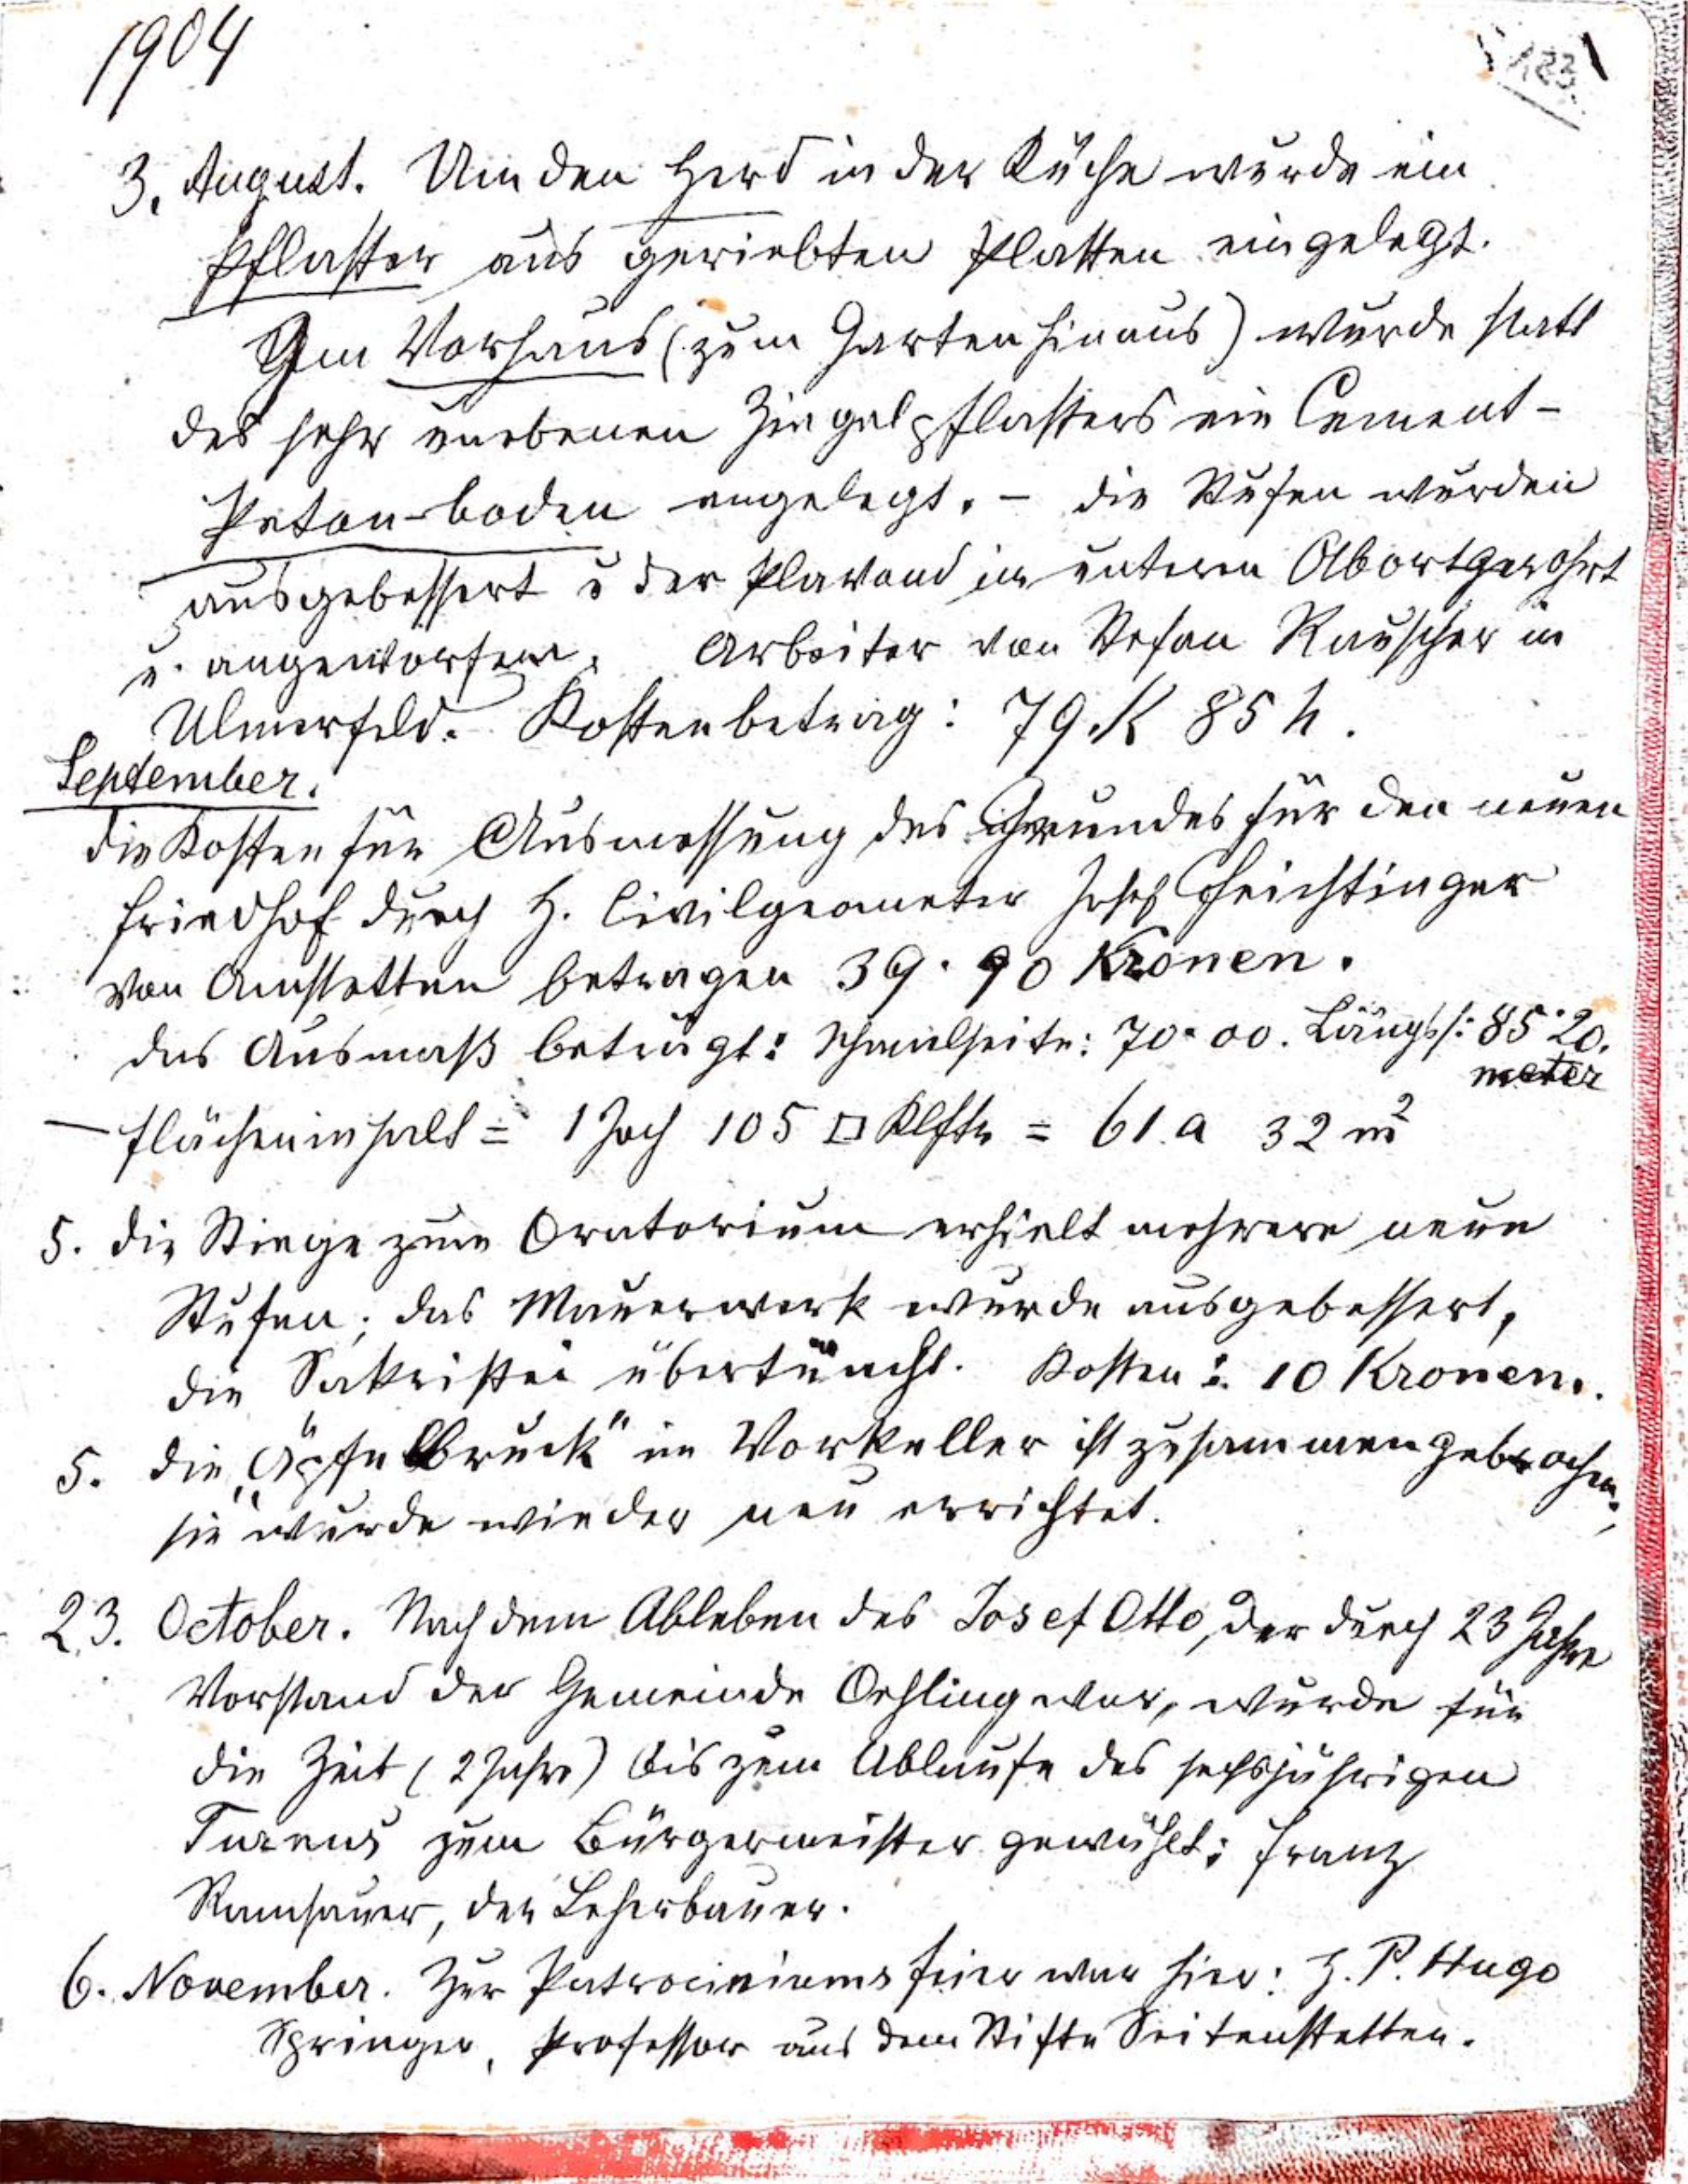 1904
123.
3. August. Um den Herd in der Küche wurde ein
Pflaster aus geriebten Platten eingelegt.
Im Vorhaus (zum Garten hinaus) wurde statt
des sehr unebenen Ziegelpflasters ein Cement-
Petonboden angelegt. - Die Stufen wurden
ausgebessert u der Plavond im unteren Abort gerohrt
u. angeworfen. Arbeiter von Stefan Rauscher in
Ulmerfeld. Kostenbetrag: 79 K 85 h.
September.
Die Kosten für Ausmessung des Grundes für den neuen
Friedhof durch H. Civilgeometer Josef Feichtinger
von Amstetten betragen 39·90 Kronen.
Das Ausmaß beträgt: Schmalseite: 70·00. Längss: 85·20.
meter
- Flächeninhalt = 1 Joch 105 □ Klftr = 61 a 32 m²
5. Die Stiege zum Oratorium erhielt mehrere neue
Stufen; das Mauerwerk wurde ausgebessert,
die Sakristei übertüncht. Kosten: 10 Kronen.
5. Die „Äpfelbruck" im Vorkeller ist zusammengebrochen;
sie wurde wieder neu errichtet.
23. October. Nach dem Ableben des Josef Otto, der durch 23 Jahre
Vorstand der Gemeinde Oehling war, wurde für
die Zeit (2 Jahre) bis zum Ablaufe des sechsjährigen
Turnus zum Bürgermeister gewählt: Franz
Ramsauer, der Leherbauer.
6. November. Zur Patrociniumsfeier war hier: H. P. Hugo
Springer, Professor aus dem Stifte Seitenstetten.